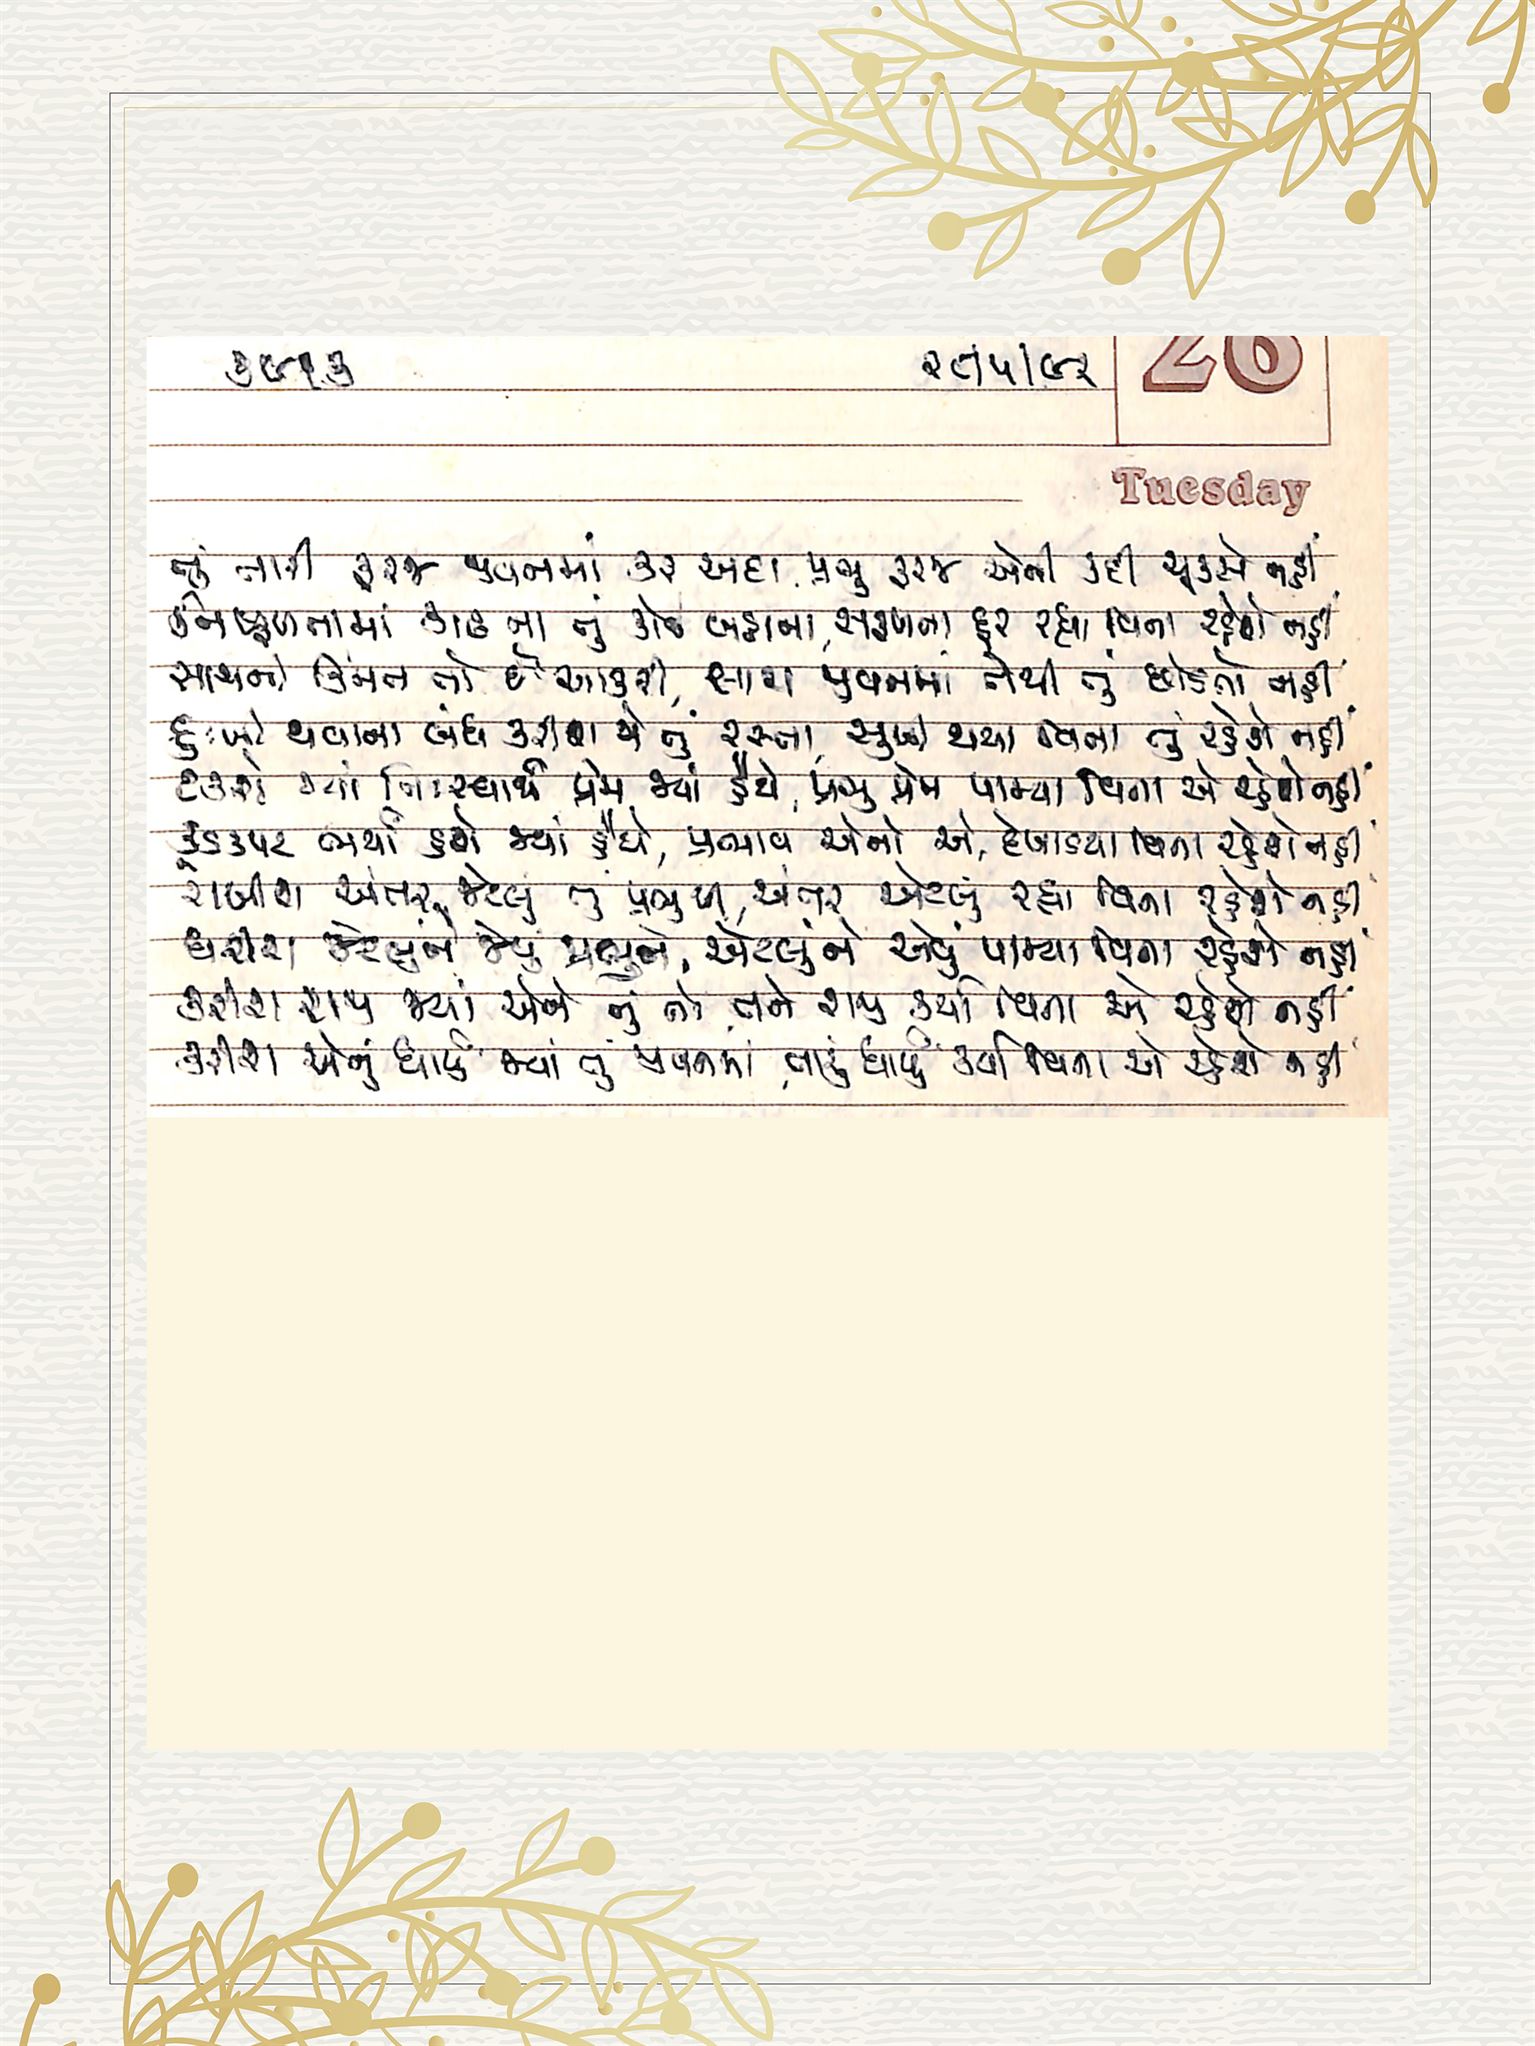 ૩૯૧૩ ૨૮/૫/૯૨ 26
Tuesday
તું તારી ફરજ જીવનમાં કર અદા, પ્રભુ ફરજ એની કદી ચૂકશે નહીં
નિષ્ફળતામાં કાઢ ના તું કોઈ બહાના, સફળતા દૂર રહ્યા વિના રહેશે નહીં
સાથની કિંમત તો છે આકરી, સાથ જીવનમાં તેથી તું છોડતો નહીં
દુઃખી થવાના બંધ કરીશ જે તું રસ્તા, સુખી થયા વિના તું રહેશે નહીં
ટકશે જ્યાં નિઃસ્વાર્થ પ્રેમ જ્યાં હૈયે, પ્રભુ પ્રેમ પામ્યા વિના એ રહેશે નહીં
કૂડકપટ ભર્યા હશે જ્યાં હૈયે, પ્રભાવ એનો એ, દેખાડયા વિના રહેશે નહીં
રાખીશ અંતર જેટલું તું પ્રભુથી, અંતર એટલું રહ્યા વિના રહેશે નહીં
ધરીશ જેટલુંને જેવું પ્રભુને, એટલુંને એવું પામ્યા વિના રહેશે નહીં
કરીશ રાજી જ્યાં એને તું તો, તને રાજી કર્યા વિના એ રહેશે નહીં
કરીશ એનું ધાર્યું જ્યાં તું જીવનમાં, તારું ધાર્યું કર્યા વિના એ રહેશે નહીં